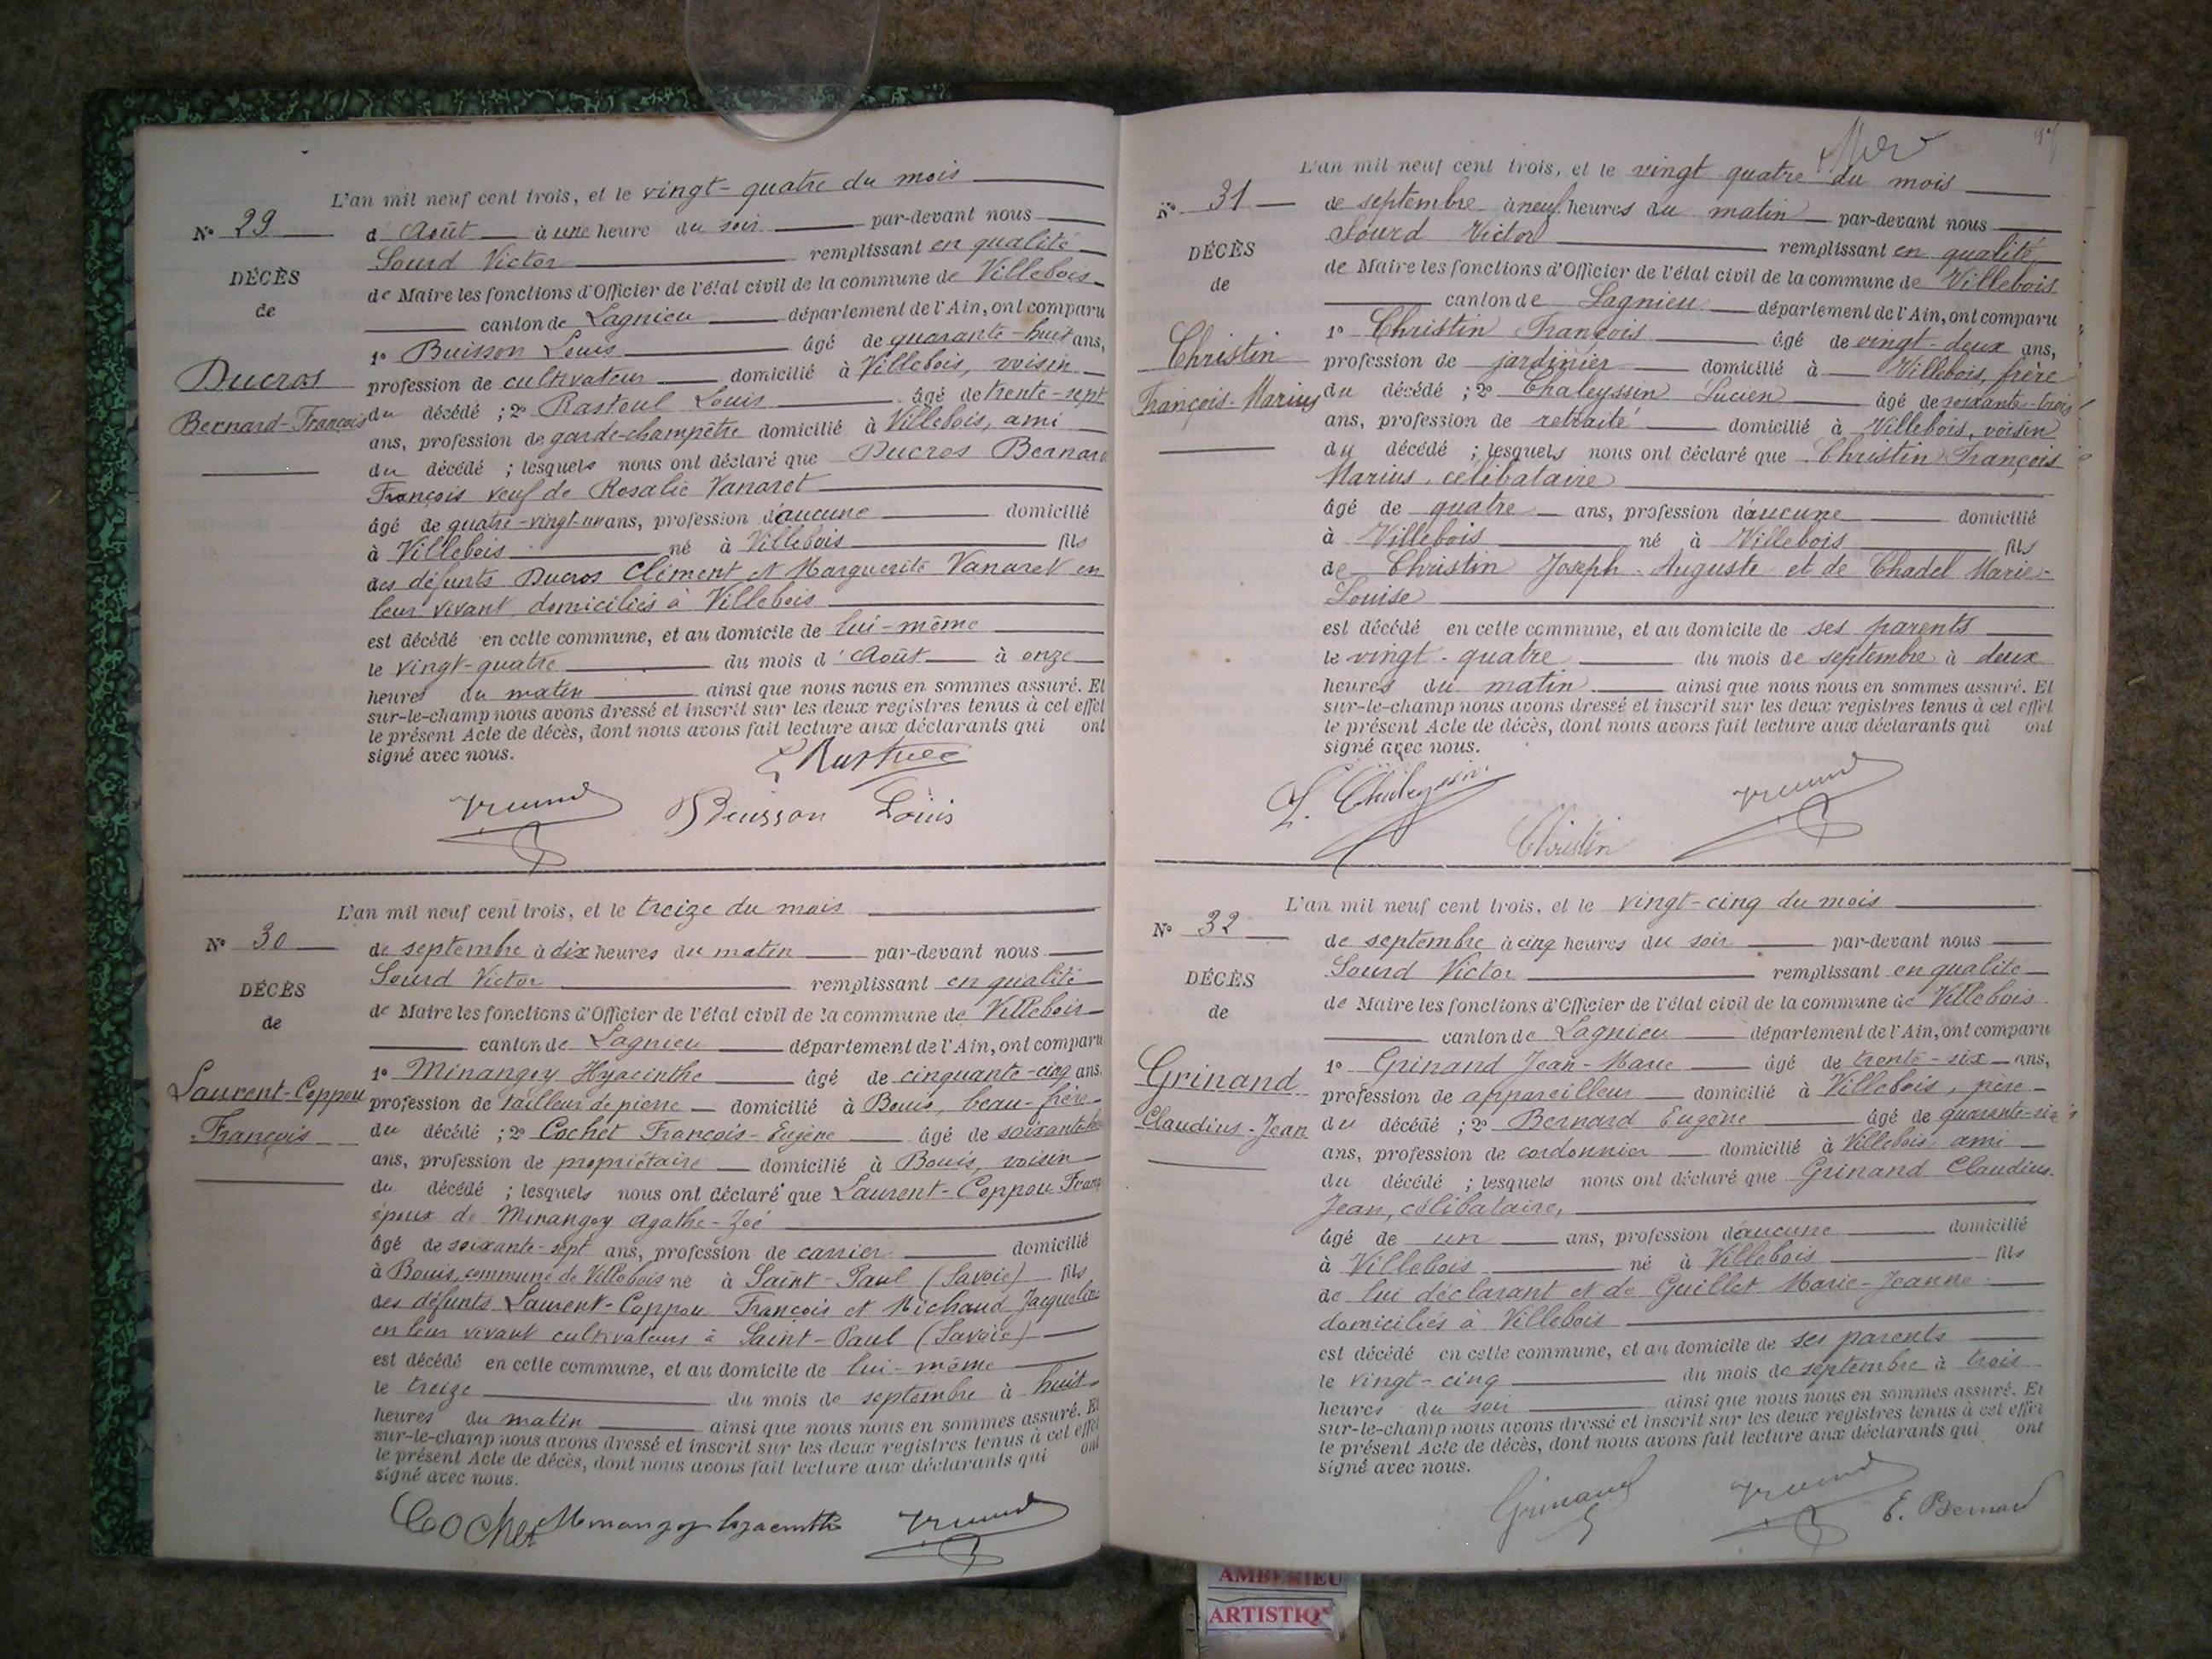 L'an mil neuf cent trois, et le vingt-quatre du mois
N° 29
d'Août à une heure du soir par-devant nous
Sourd Victor remplissant en qualité
DÉCÈS
de Maire les fonctions d'Officier de l'état civil de la commune de Villebois
de
canton de Lagnieu département de l'Ain, ont comparu
1° Buisson Louis âgé de quarante-huit ans,
Ducros
profession de cultivateur domicilié à Villebois, voisin
Bernard-François
du décédé ; 2° Rastoul Louis âgé de trente-sept
ans, profession de garde-champêtre domicilié à Villebois, ami
du décédé ; lesquels nous ont déclaré que Ducros Bernard
François veuf de Rosalie Vanaret
âgé de quatre-vingt-un ans, profession d'aucune domicilié
à Villebois né à Villebois fils
des défunts Ducros Clément et Marguerite Vanaret en
leur vivant domiciliés à Villebois
est décédé en cette commune, et au domicile de lui-même
le vingt-quatre du mois d'Août à onze
heures du matin ainsi que nous nous en sommes assuré. Et
sur-le-champ nous avons dressé et inscrit sur les deux registres tenus à cet effet
le présent Acte de décès, dont nous avons fait lecture aux déclarants qui ont
signé avec nous.
Buisson Louis
L'an mil neuf cent trois, et le treize du mois
N° 30
de septembre à dix heures du matin par-devant nous
Sourd Victor remplissant en qualité
DÉCÈS
de Maire les fonctions d'Officier de l'état civil de la commune de Villebois
de
canton de Lagnieu département de l'Ain, ont comparu
1° Minangoy Hyacinthe âgé de cinquante-cinq ans
Laurent-Coppou
profession de tailleur de pierre domicilié à Bouis, beau-frère
François
du décédé ; 2° Cochet François-Eugène âgé de
ans, profession de propriétaire domicilié à Bouis, voisin
du décédé ; lesquels nous ont déclaré que Laurent-Coppou Franç
époux de Minangoy Agathe-Zoé
âgé de soixante-sept ans, profession de carrier domicilié
à Bouis, commune de Villebois né à Saint-Paul (Savoie) fils
des défunts Laurent-Coppou François et Michaud Jacqueline
en leur vivant cultivateurs à Saint-Paul (Savoie)
est décédé en cette commune, et au domicile de lui-même
le treize du mois de septembre à huit
heures du matin ainsi que nous nous en sommes assuré. Et
sur-le-champ nous avons dressé et inscrit sur les deux registres tenus à cet effet
le présent Acte de décès, dont nous avons fait lecture aux déclarants qui ont
signé avec nous.
Cochet Minangoy hyacinthe
L'an mil neuf cent trois, et le vingt quatre du mois
N° 31
de septembre à neuf heures du matin par-devant nous
Sourd Victor remplissant en qualité
DÉCÈS
de Maire les fonctions d'Officier de l'état civil de la commune de Villebois
de
canton de Lagnieu département de l'Ain, ont comparu
1° Christin François âgé de vingt-deux ans,
Christin
profession de jardinier domicilié à Villebois, frère
François-Marius
du décédé ; 2° Chaleyssin Lucien âgé de soixante-trois
ans, profession de retraité domicilié à Villebois, voisin
du décédé ; lesquels nous ont déclaré que Christin François
Marius, célibataire
âgé de quatre ans, profession d'aucune domicilié
à Villebois né à Villebois fils
de Christin Joseph-Auguste et de Chadel Marie-
Louise
est décédé en cette commune, et au domicile de ses parents
le vingt-quatre du mois de septembre à deux
heures du matin ainsi que nous nous en sommes assuré. Et
sur-le-champ nous avons dressé et inscrit sur les deux registres tenus à cet effet
le présent Acte de décès, dont nous avons fait lecture aux déclarants qui ont
signé avec nous.
L. Chaleyssin
Christin
L'an mil neuf cent trois, et le vingt-cinq du mois
N° 32
de septembre à cinq heures du soir par-devant nous
Sourd Victor remplissant en qualité
DÉCÈS
de Maire les fonctions d'Officier de l'état civil de la commune de Villebois
de
canton de Lagnieu département de l'Ain, ont comparu
1° Grinand Jean-Marie âgé de trente-six ans,
Grinand
profession de appareilleur domicilié à Villebois, père
Claudius-Jean
du décédé ; 2° Bernard Eugène âgé de quarante-six
ans, profession de cordonnier domicilié à Villebois, ami
du décédé ; lesquels nous ont déclaré que Grinand Claudius-
Jean, célibataire,
âgé de un ans, profession d'aucune domicilié
à Villebois né à Villebois fils
de lui déclarant et de Guillet Marie-Jeanne
domiciliés à Villebois
est décédé en cette commune, et au domicile de ses parents
le vingt-cinq du mois de septembre à trois
heures du soir ainsi que nous nous en sommes assuré. Et
sur-le-champ nous avons dressé et inscrit sur les deux registres tenus à cet effet
le présent Acte de décès, dont nous avons fait lecture aux déclarants qui ont
signé avec nous.
Grinand
E. Bernard
AMBERIEU
ARTISTIQ